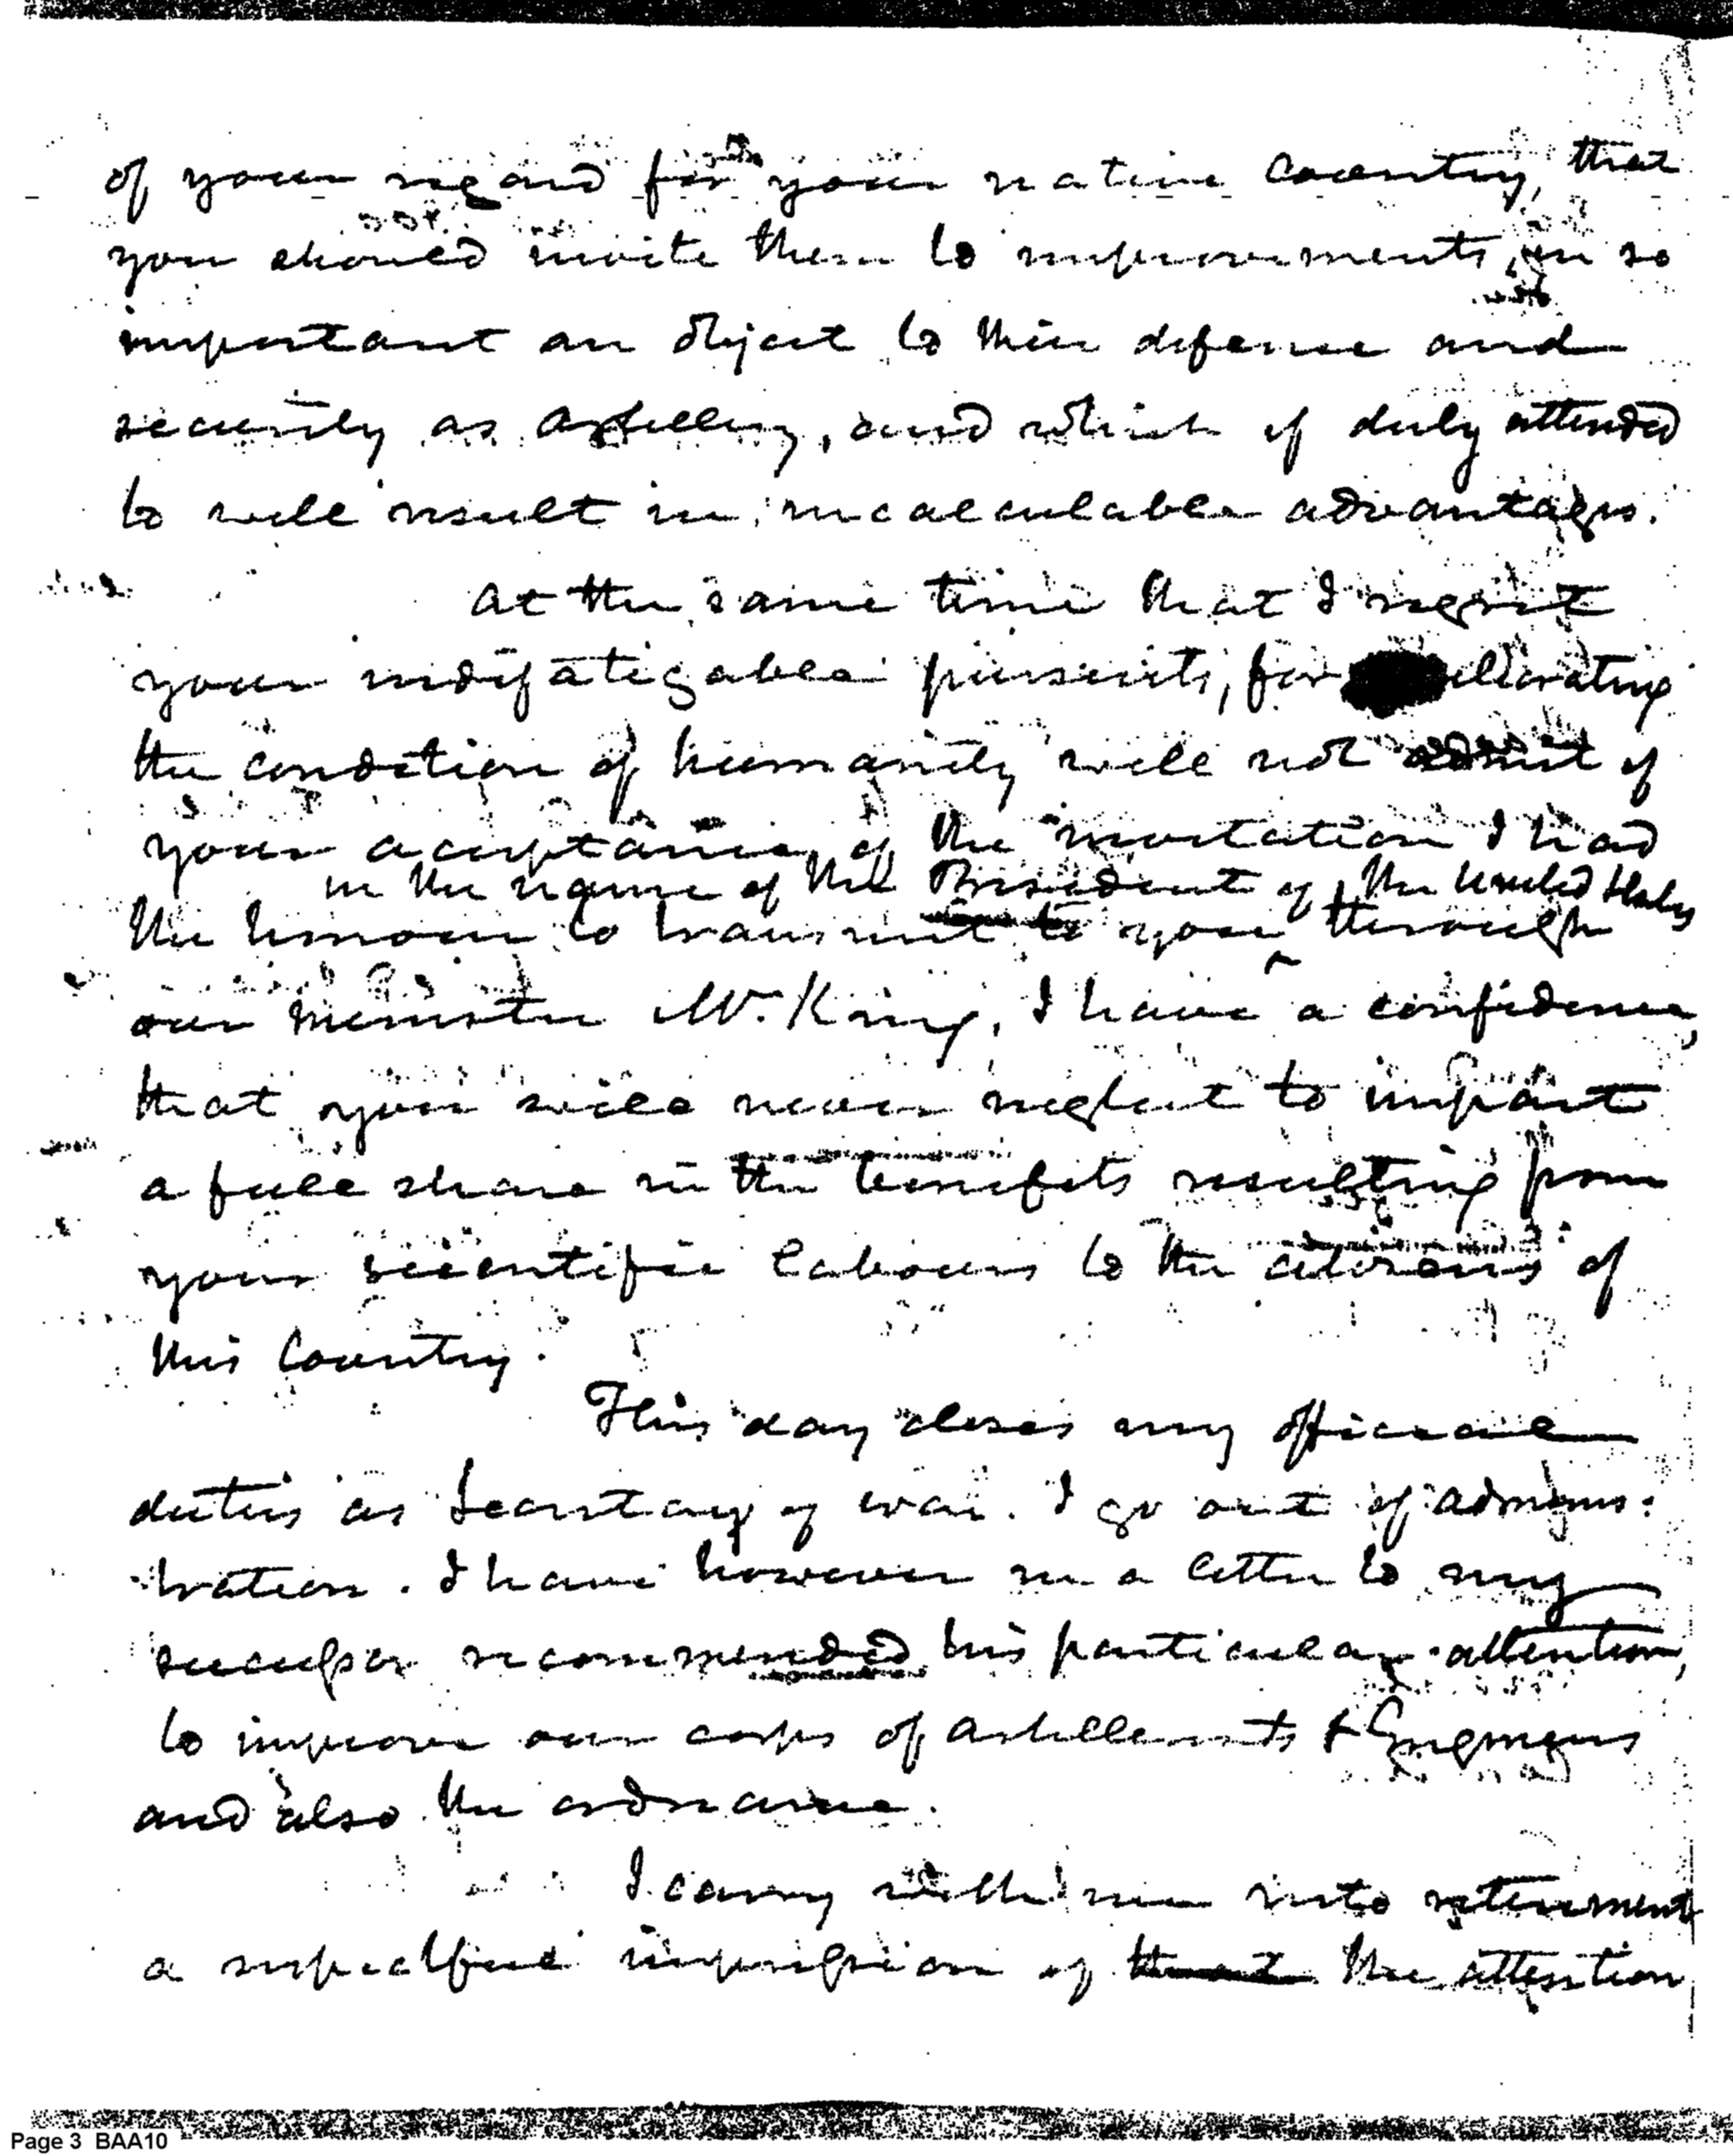 of your regard for your native Country, that
you should invite them to improvements, in so
important an object to their defense and
security as artillery, and which if duly attended
to will result in incalculable advantages.
At the same time that I regret
your indefatigable pursuits, for eliorating
the condition of humanity will not admit of
your acceptance, of the invitation I had
in the name of the President of the United States
the honour to transmit to you through
our minister Mr. King, I have a confidence,
that you will never neglect to impart
a full share in the benefits resulting from
your scientific labours to the citizens of
this Country.
This day closes my official
duties as Secretary of war. I go out of adminis-
tration. I have however in a letter to my
successor recommended his particular attention,
to improve our corps of artillerists & Engineers
and also the ordnance.
I carry with me into retirement
a respectful impression of the attention
Page 3 BAA10